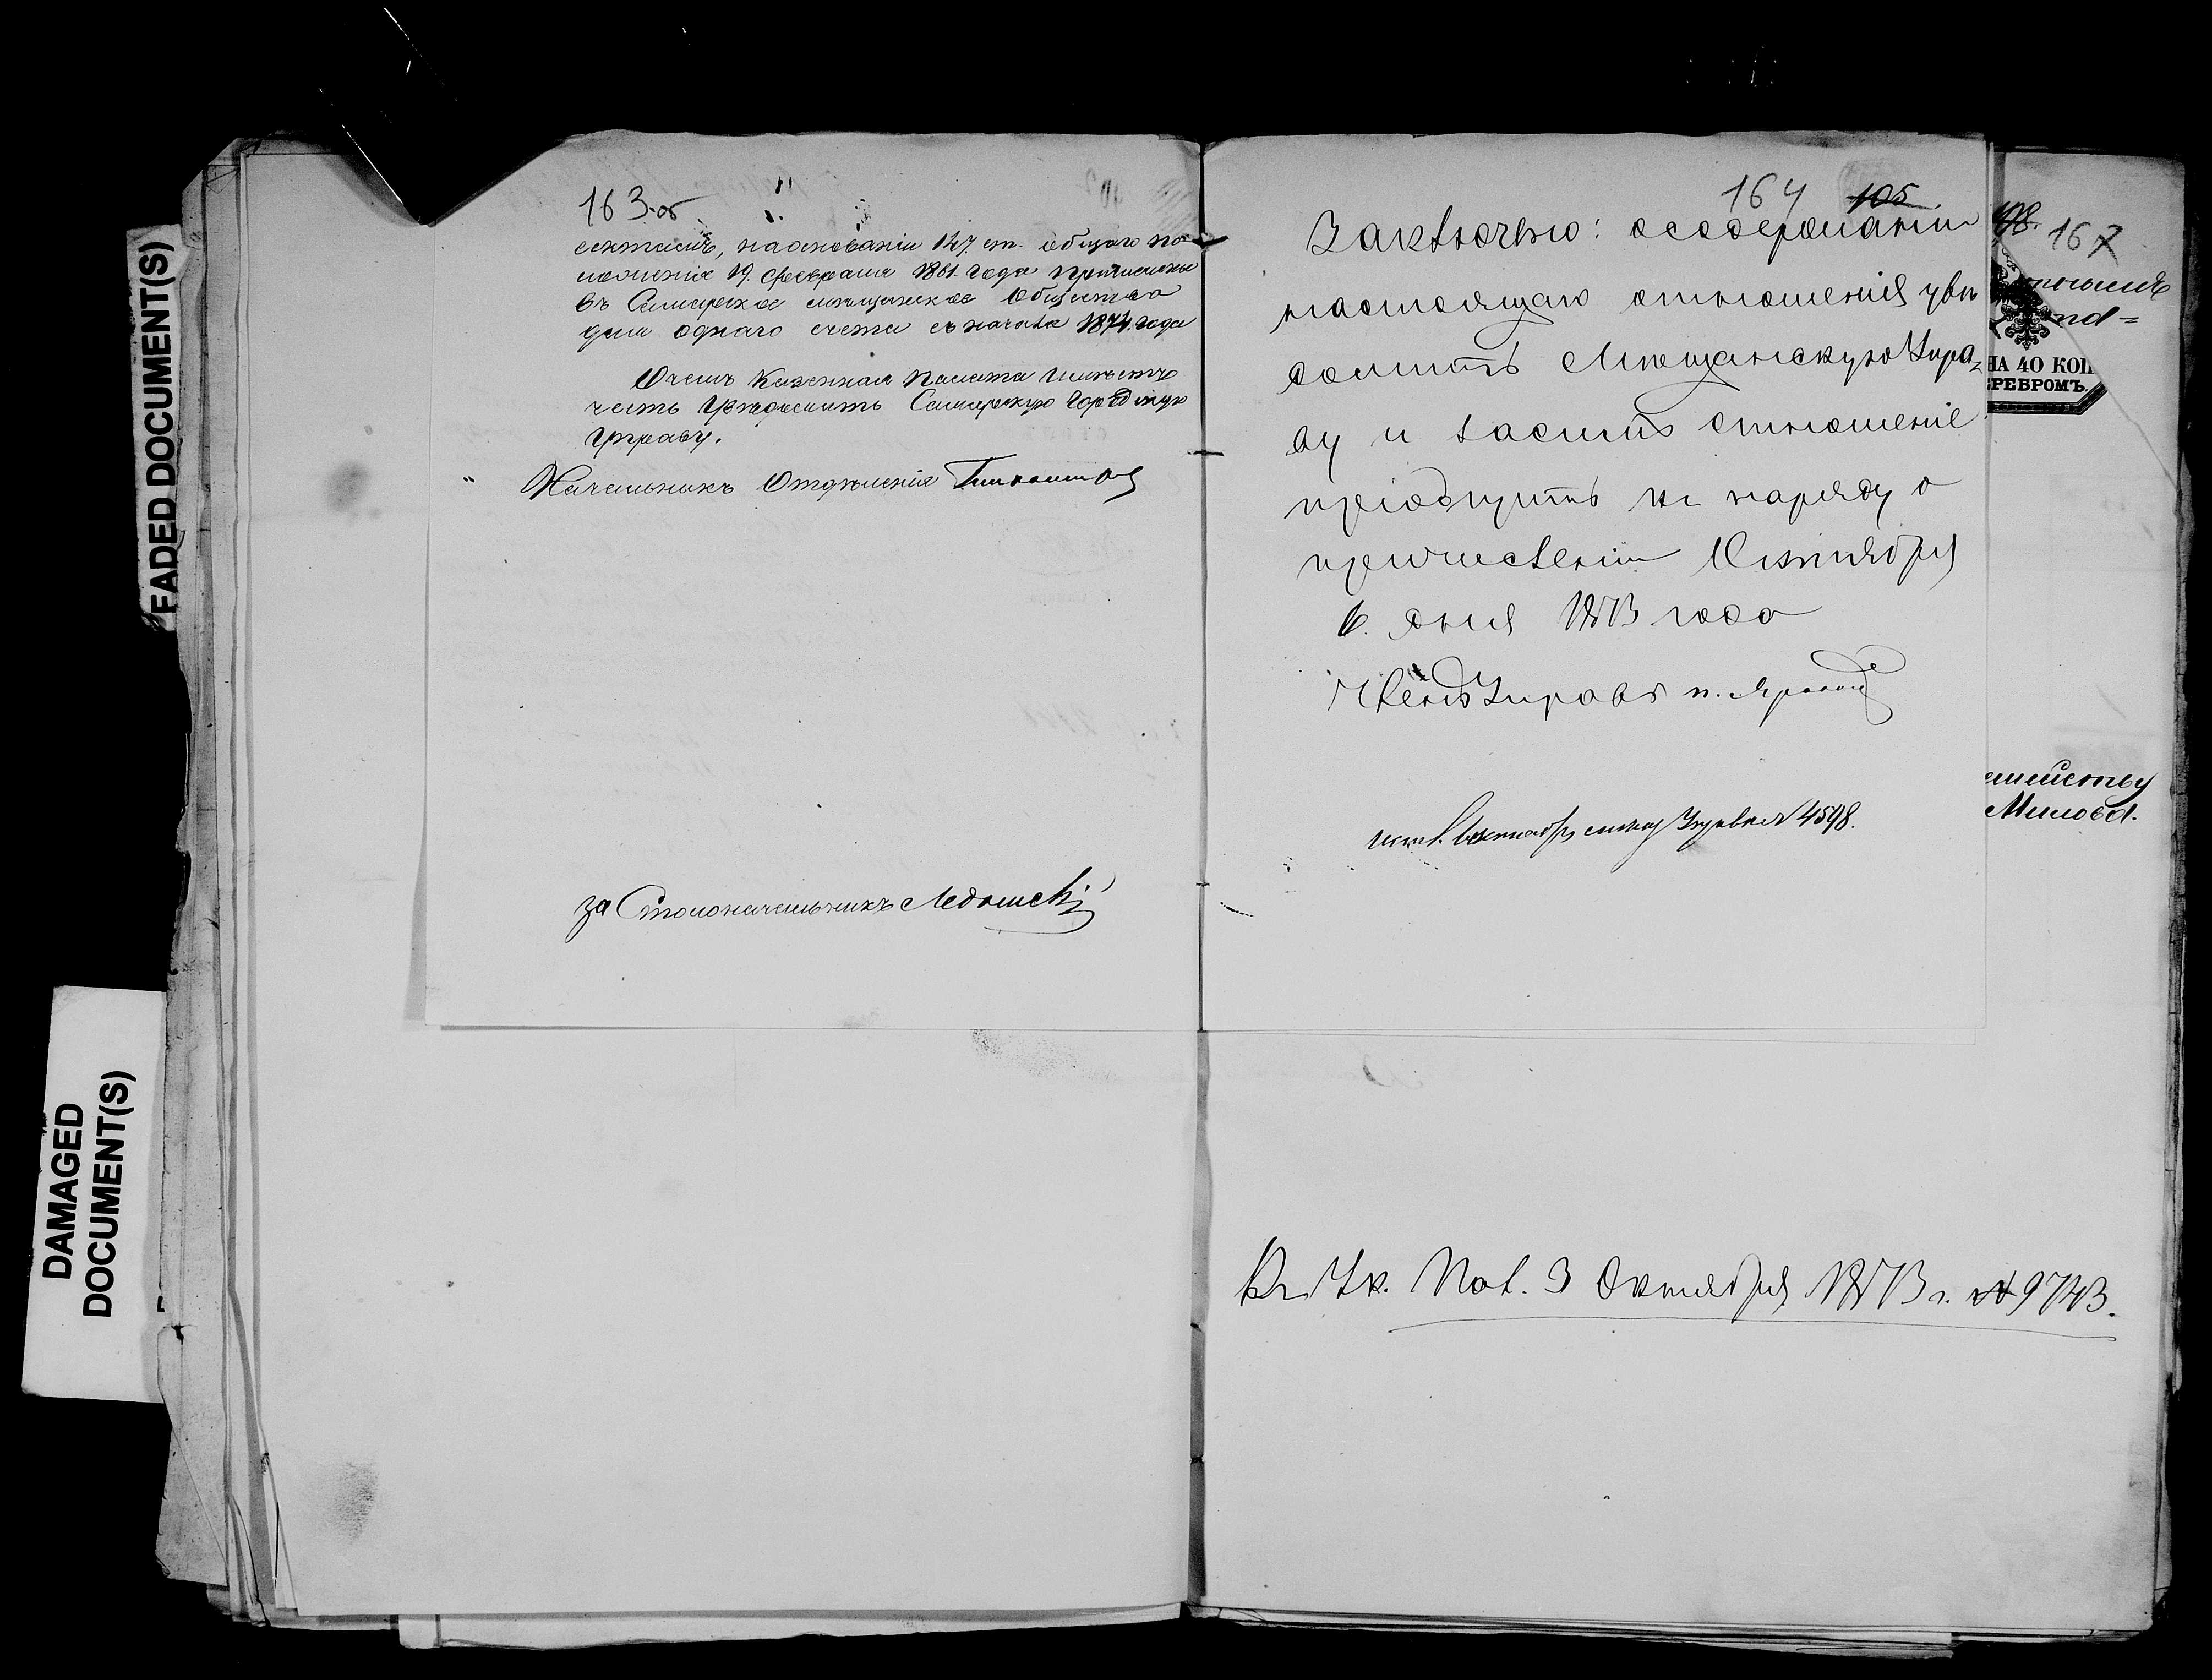 FADED DOCUMENT(S)
DAMAGED
DOCUMENT(S)
163 об
на основаніи 147 ст. общаго по
ложенія 19 февраля 1861 года причислены
въ Самарское мѣщанское Общество
для однаго счета съ начала 1874 года
О чемъ Казенная Палата имѣетъ
честь увѣдомить Самарскую Городскую
Управу.
Начальникъ Отдѣленія
за Столоначальника
164 105
Заключено: о содержаніи
настоящаго отношенія увѣ
домить Мѣщанскую Упра=
ву и самое отношеніе
пріобщить къ наряду о
причисленіи Октября
6 дня 1873 года
Членъ Управы
исп. Октября Управѣ № 4598.
Къ Ук. Пол. 3 Октября 1873 г. № 9743.
167
НА 40 КОП
ЕРЕБРОМЪ